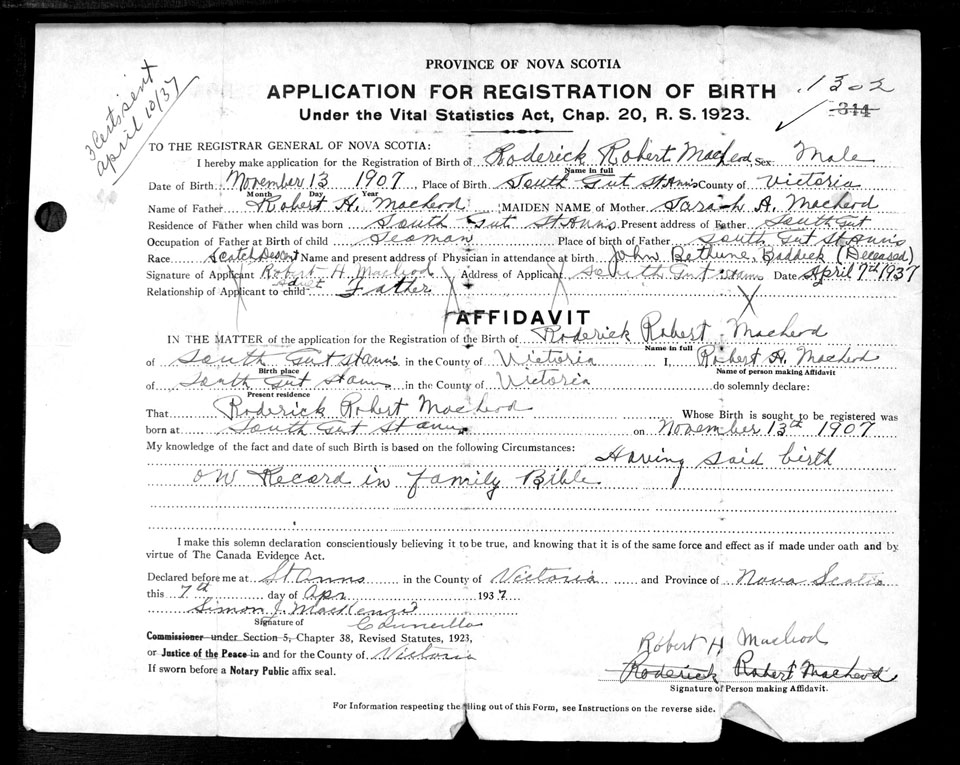 3 Certs sent
April 10/37
PROVINCE OF NOVA SCOTIA
APPLICATION FOR REGISTRATION OF BIRTH
1302
344
Under the Vital Statistics Act, Chap. 20, R. S. 1923.
TO THE REGISTRAR GENERAL OF NOVA SCOTIA:
I hereby make application for the Registration of Birth of Roderick Robert Macleod, Sex Male
Name in full
Date of Birth November 13 1907, Place of Birth South Gut St Anns County of Victoria
Month Day, Year
Name of Father Robert H. Macleod MAIDEN NAME of Mother Sarah A. Macleod
Residence of Father when child was born South Gut St Anns Present address of Father South Gut
Occupation of Father at Birth of child Seaman Place of birth of Father South Gut St Anns
Race Scotch Descent Name and present address of Physician in attendance at birth John Bethune, Baddeck (Deceased)
Signature of Applicant Robert H. Macleod Address of Applicant South Gut St Anns Date April 7th 1937
Relationship of Applicant to child Father
AFFIDAVIT
IN THE MATTER of the application for the Registration of the Birth of Roderick Robert Macleod
Name in full
of South Gut St Anns in the County of Victoria I, Robert H. Macleod
Birth place Name of person making Affidavit
of South Gut St Anns in the County of Victoria do solemnly declare:
Present residence
That Roderick Robert Macleod Whose Birth is sought to be registered was
born at South Gut St Anns on November 13th 1907
My knowledge of the fact and date of such Birth is based on the following Circumstances: Having said birth
on Record in family Bible
I make this solemn declaration conscientiously believing it to be true, and knowing that it is of the same force and effect as if made under oath and by
virtue of The Canada Evidence Act.
Declared before me at St Anns in the County of Victoria and Province of Nova Scotia
this 7th day of Apr 1937
Simon J. MacKenzie
Signature of Councillor
Commissioner under Section 5, Chapter 38, Revised Statutes, 1923,
or Justice of the Peace in and for the County of Victoria
Robert H Macleod
If sworn before a Notary Public affix seal.
Roderick Robert Macleod
Signature of Person making Affidavit.
For Information respecting the filling out of this Form, see Instructions on the reverse side.